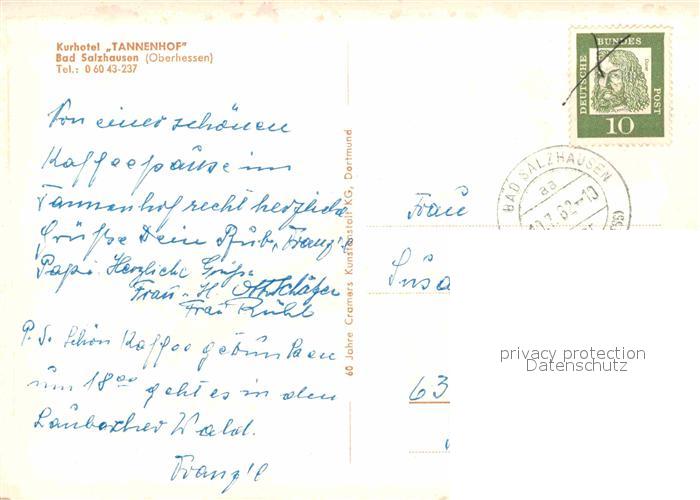 Kurhotel „TANNENHOF"
Bad Salzhausen (Oberhessen)
Tel.: 0 60 43-237
Von einer schönen
Kaffeepause im
Tannenhof recht herzliche
Grüße Dein Franz'l
Papi. Herzliche Grüße
Frau H. Schäfer
Frau Kühl
P.S. Schön Kaffee getrunken
um 18⁰⁰ geht es in den
Laubacher Wald.
Franz'l
60 Jahre Cramers Kunstanstalt KG, Dortmund
DEUTSCHE BUNDESPOST
Dürer
10
BAD SALZHAUSEN
aa
.7.62-10
Frau
Susa
63
privacy protection
Datenschutz